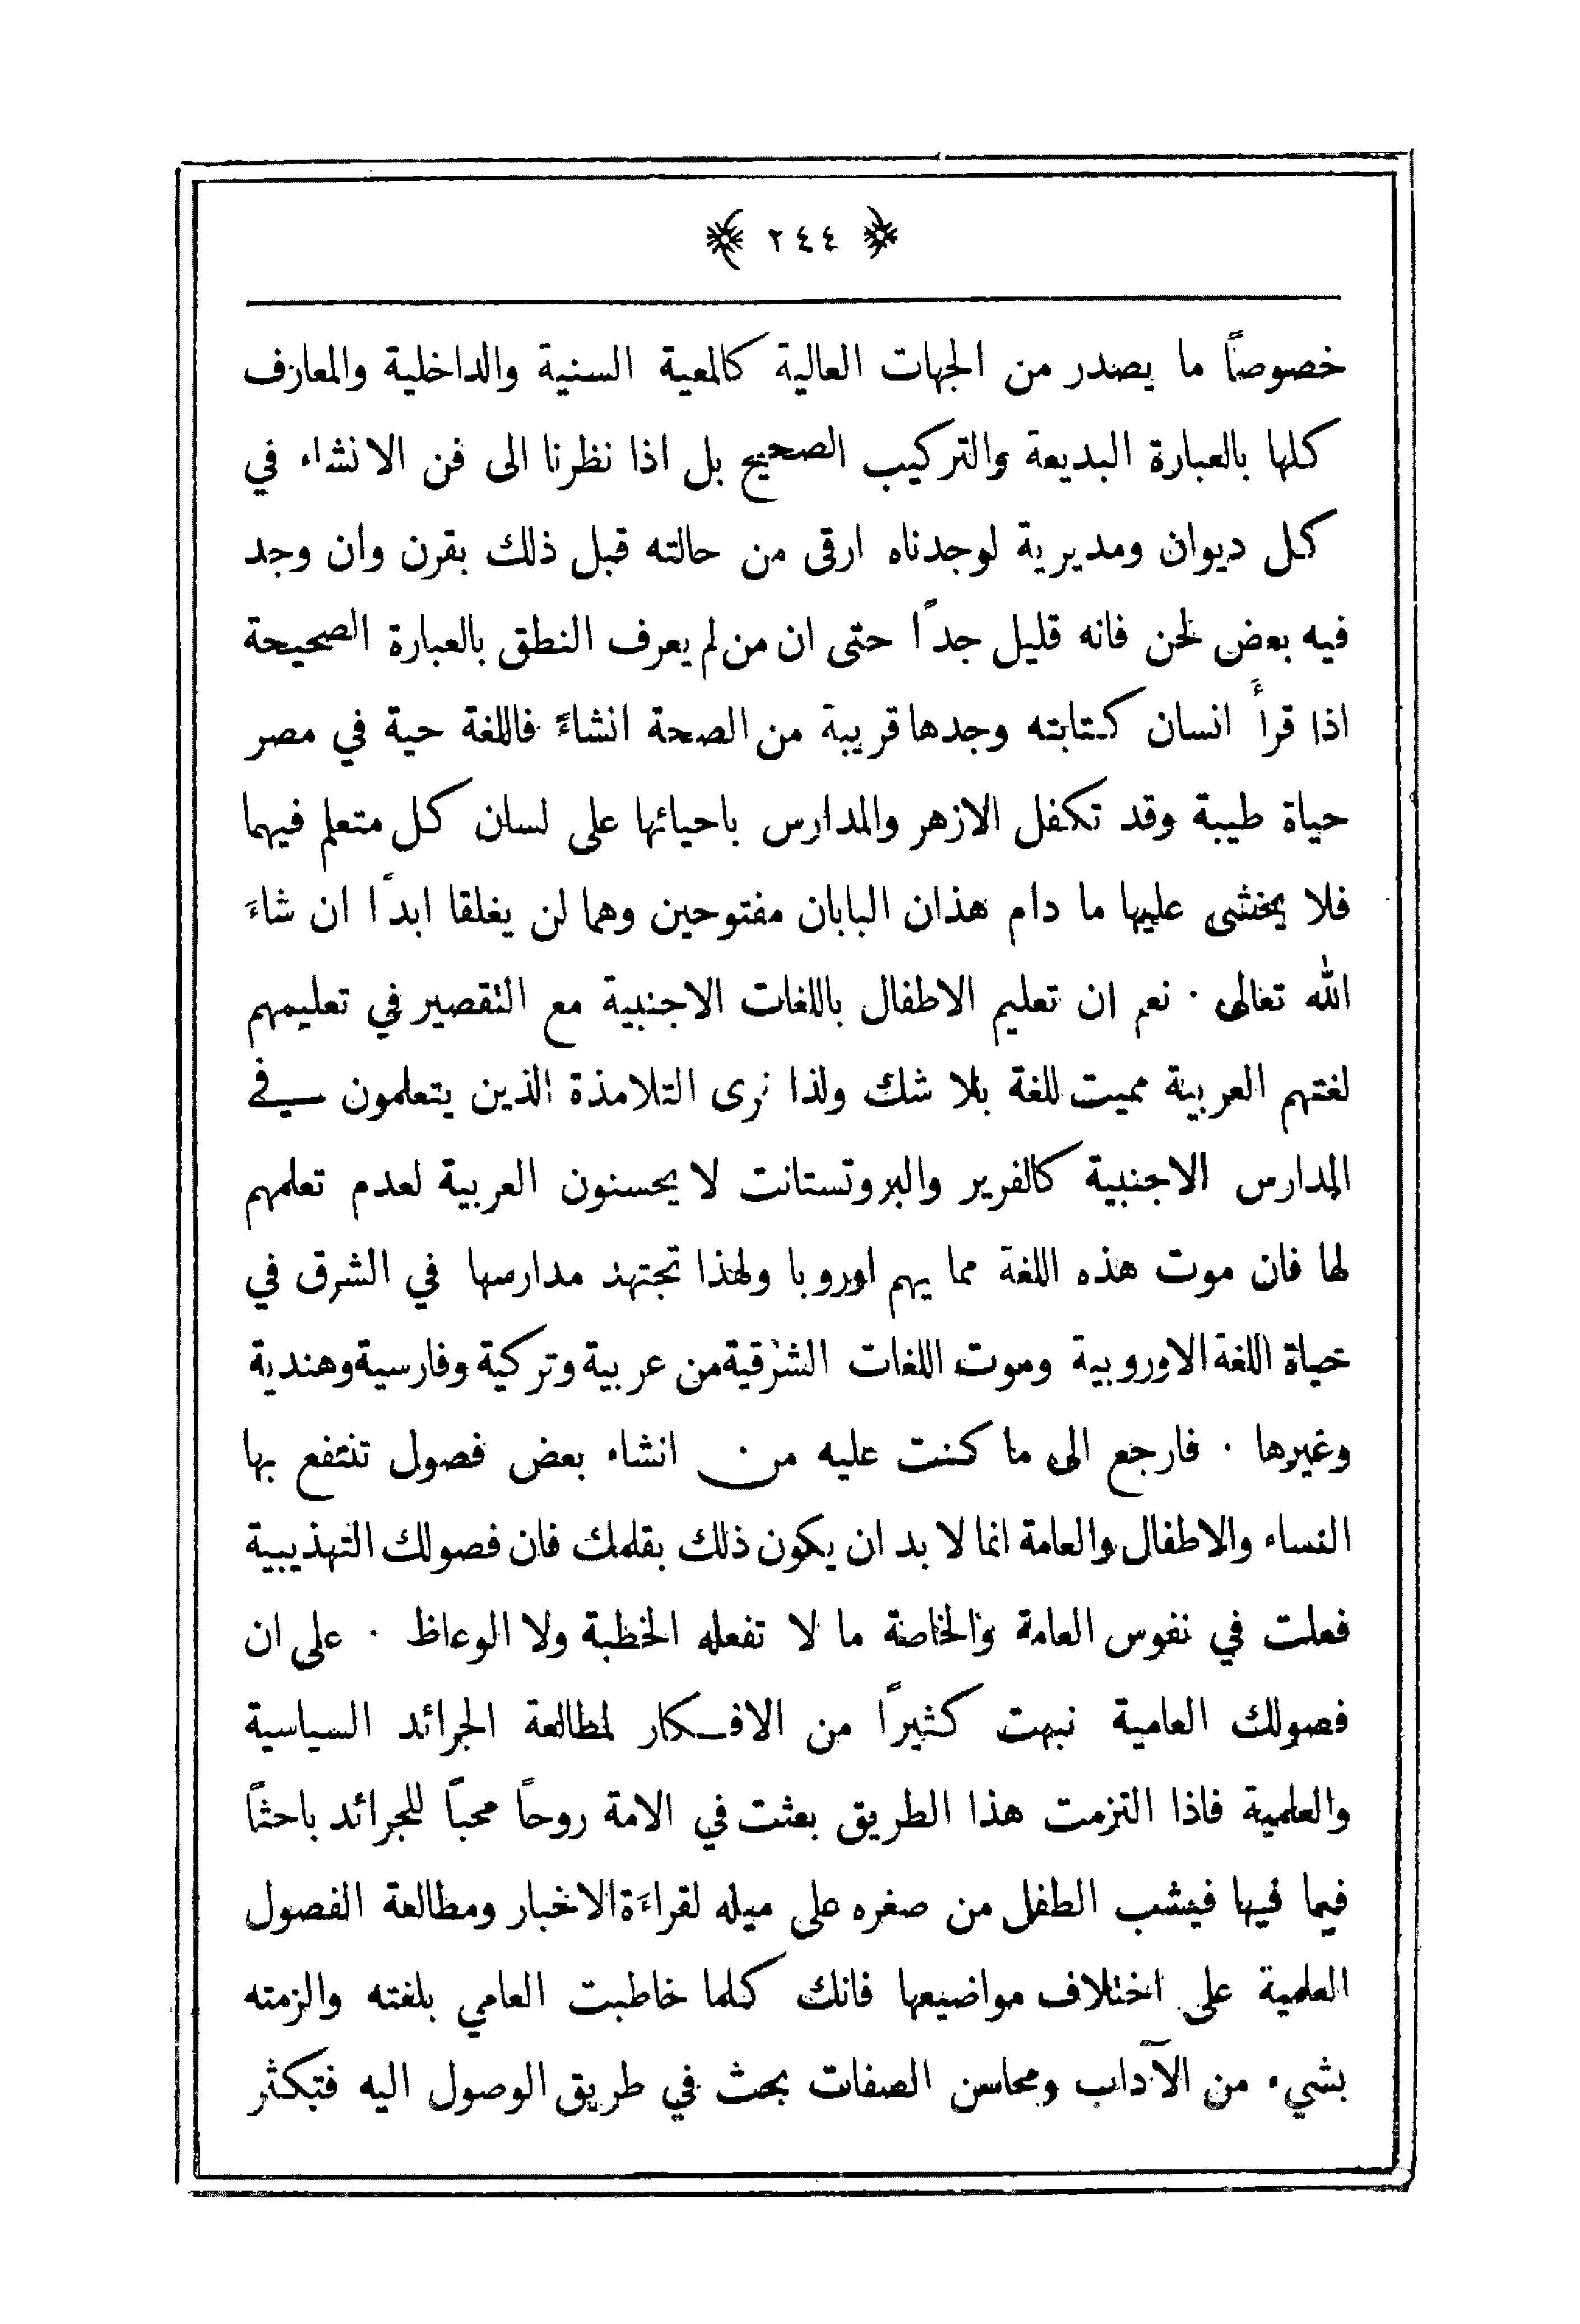 ﴿ ٢٤٤ ﴾
خصوصاً ما يصدر من الجهات العالية كالمعية السنية والداخلية والمعارف
كلها بالعبارة البديعة والتركيب الصحيح بل اذا نظرنا الى فن الانشاء في
كل ديوان ومديرية لوجدناه ارقى من حالته قبل ذلك بقرن وان وجد
فيه بعض لحن فانه قليل جداً حتى ان من لم يعرف النطق بالعبارة الصحيحة
اذا قرأَ انسان كتابته وجدها قريبة من الصحة انشاءً فاللغة حية في مصر
حياة طيبة وقد تكفل الازهر والمدارس باحيائها على لسان كل متعلم فيهما
فلا يخشى عليها ما دام هذان البابان مفتوحين وهما لن يغلقا ابداً ان شاءَ
الله تعالى · نعم ان تعليم الاطفال باللغات الاجنبية مع التقصير في تعليمهم
لغتهم العربية مميت للغة بلا شك ولذا نرى التلامذة الذين يتعلمون في
المدارس الاجنبية كالفرير والبروتستانت لا يحسنون العربية لعدم تعلمهم
لها فان موت هذه اللغة مما يهم اوروبا ولهذا تجتهد مدارسها في الشرق في
حياة اللغة الاوروبية وموت اللغات الشرقية من عربية وتركية وفارسية وهندية
وغيرها · فارجع الى ما كنت عليه من انشاء بعض فصول تنتفع بها
النساء والاطفال والعامة انما لا بد ان يكون ذلك بقلمك فان فصولك التهذيبية
فعلت في نفوس العامة والخاصة ما لا تفعله الخطبة ولا الوعاظ · على ان
فصولك العامية نبهت كثيراً من الافكار لمطالعة الجرائد السياسية
والعلمية فاذا التزمت هذا الطريق بعثت في الامة روحاً محباً للجرائد باحثاً
فيما فيها فيشب الطفل من صغره على ميله لقراءَة الاخبار ومطالعة الفصول
العلمية على اختلاف مواضيعها فانك كلما خاطبت العامي بلغته والزمته
بشيء من الآداب ومحاسن الصفات بحث في طريق الوصول اليه فتكثر